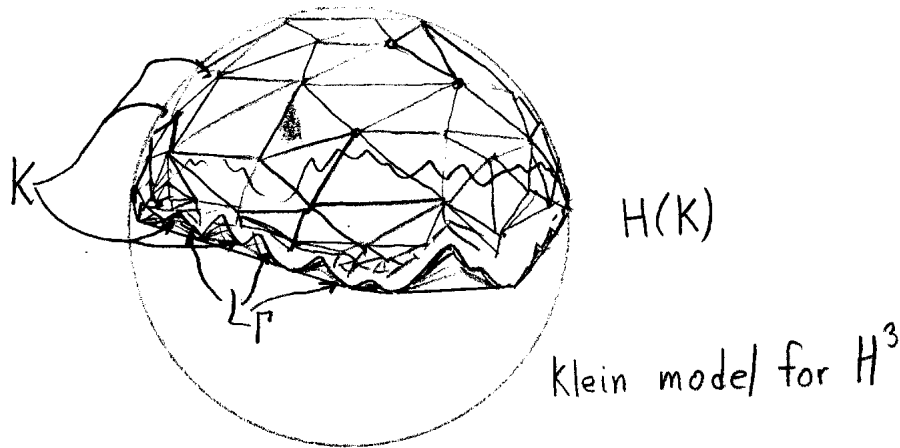 K
H(K)
L_Γ
Klein model for H³